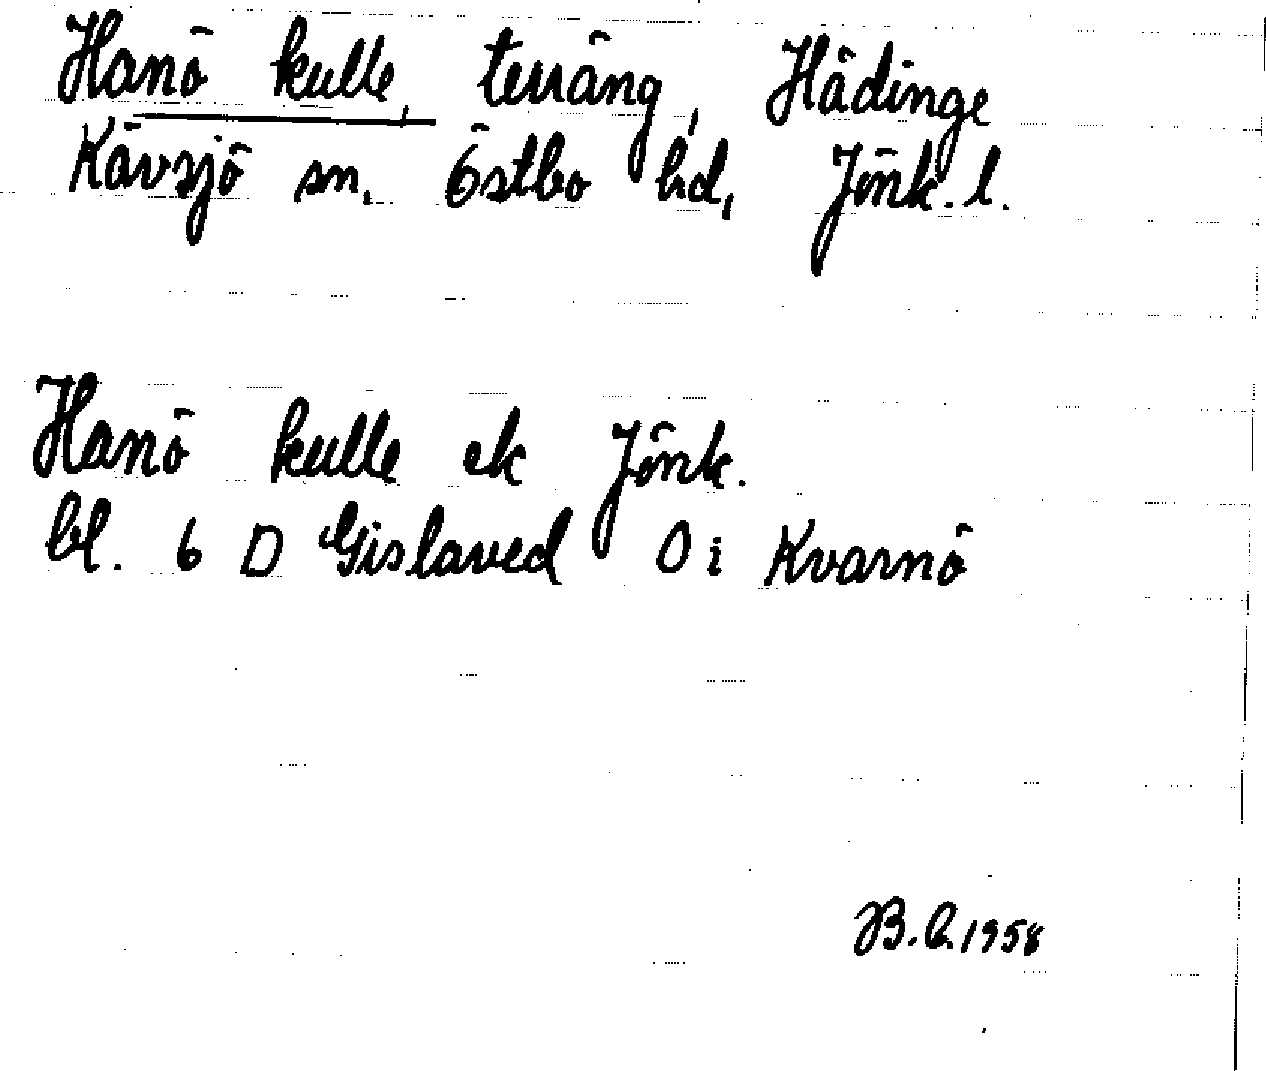 Hanö kulle, terräng, Hädinge
Kävsjö sn. Östbo hd, Jönk. l.
Hanö kulle ek Jönk.
bl. 6 D Gislaved O i Kvarnö
B. L. 1958